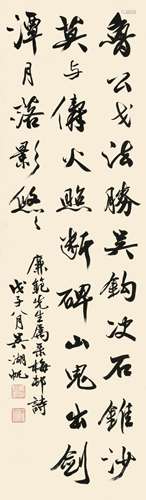 魯公戈法勝吳鈎決石錐沙
莫與儔火照斷碑山鬼出劍
潭月落影悠々
先生屬彔梅邨詩
戊子八月吳湖帆